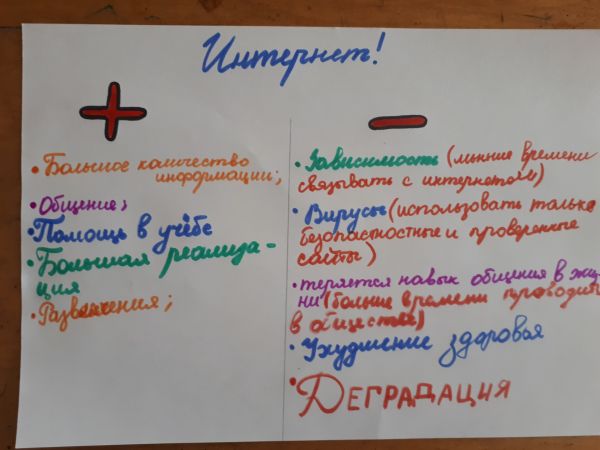 Интернет!
+
• Большое количество
информации;
• Общение;
• Помощь в учёбе
• Большая реализа-
ция
• Развлечения;
−
• Зависимость (мьние времени
связывать с интернетом)
• Вирусы (использовать только
безопасностные и проверенные
сайты)
• теряется навык общения в жи
ни (больше времени проводит
в обществе)
• Ухудшение здоровья
• ДЕГРАДАЦИЯ